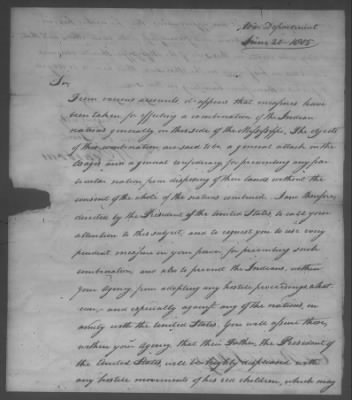 War Department
June 20 1805
Sir,
From various accounts it appears that measures have
been taken, for effecting a combination of the Indian
nations generally on this side of the Mississippi. The objects
of this combination are said to be, a general attack on the
and a general confederacy for preventing any par-
ticular nation from disposing of their lands without the
consent of the whole of the nations combined. I am therefore
directed by the President of the United States, to call your
attention to this subject, and to request you to use every
prudent measure in your power, for preventing such
combination, and also to prevent the Indians, within
your Agency from adopting any hostile proceedings what
ever, and especially against any of the nations, in
amity with the United States. You will assure those,
within your Agency, that their Father, the President of
the United States, will be highly displeased with
any hostile movements of his red children, which may